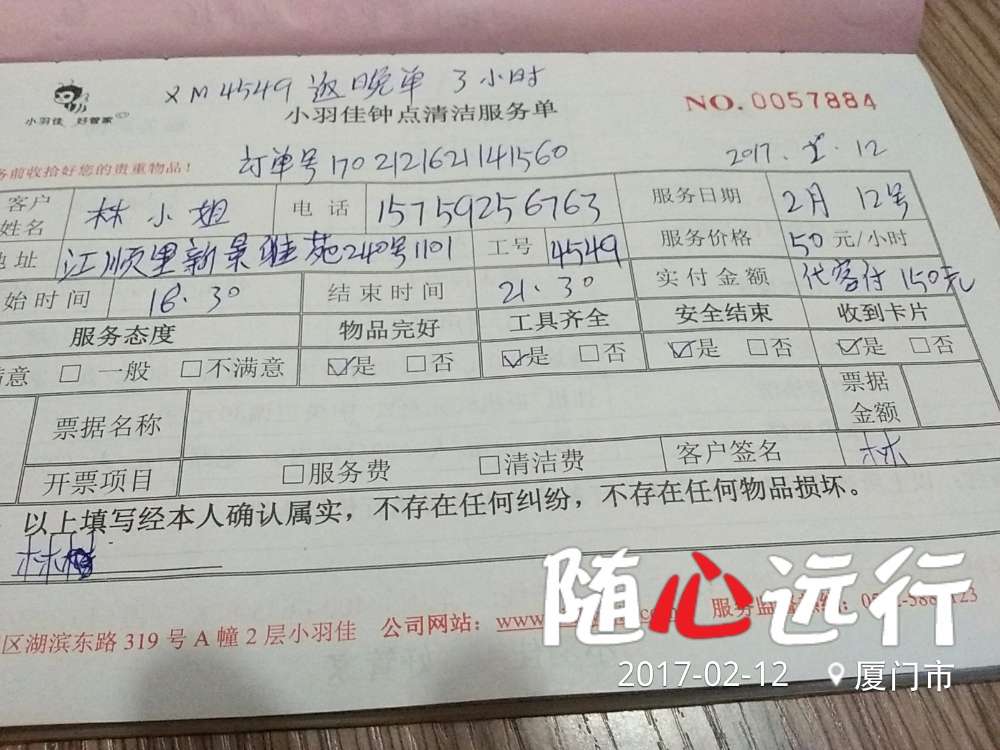 XM4549 返晚单 3小时
小羽佳 好管家
小羽佳钟点清洁服务单
NO.0057884
务前收拾好您的贵重物品!
订单号170212162114 1560
2017.2.12
客户姓名 林小姐 电话 15759256763 服务日期 2月12号
地址 江顺里新景雅苑240号1101 工号 4549 服务价格 50元/小时
始时间 18.30 结束时间 21.30 实付金额 代客付150元
服务态度 物品完好 工具齐全 安全结束 收到卡片
满意 □ 一般 □不满意 ☑是 □否 ☑是 □否 ☑是 □否 ☑是 □否
票据名称 票据金额
开票项目 □服务费 □清洁费 客户签名 林
以上填写经本人确认属实，不存在任何纠纷，不存在任何物品损坏。
区湖滨东路319号A幢2层小羽佳 公司网站：www. 服务监
随心远行
2017-02-12 厦门市